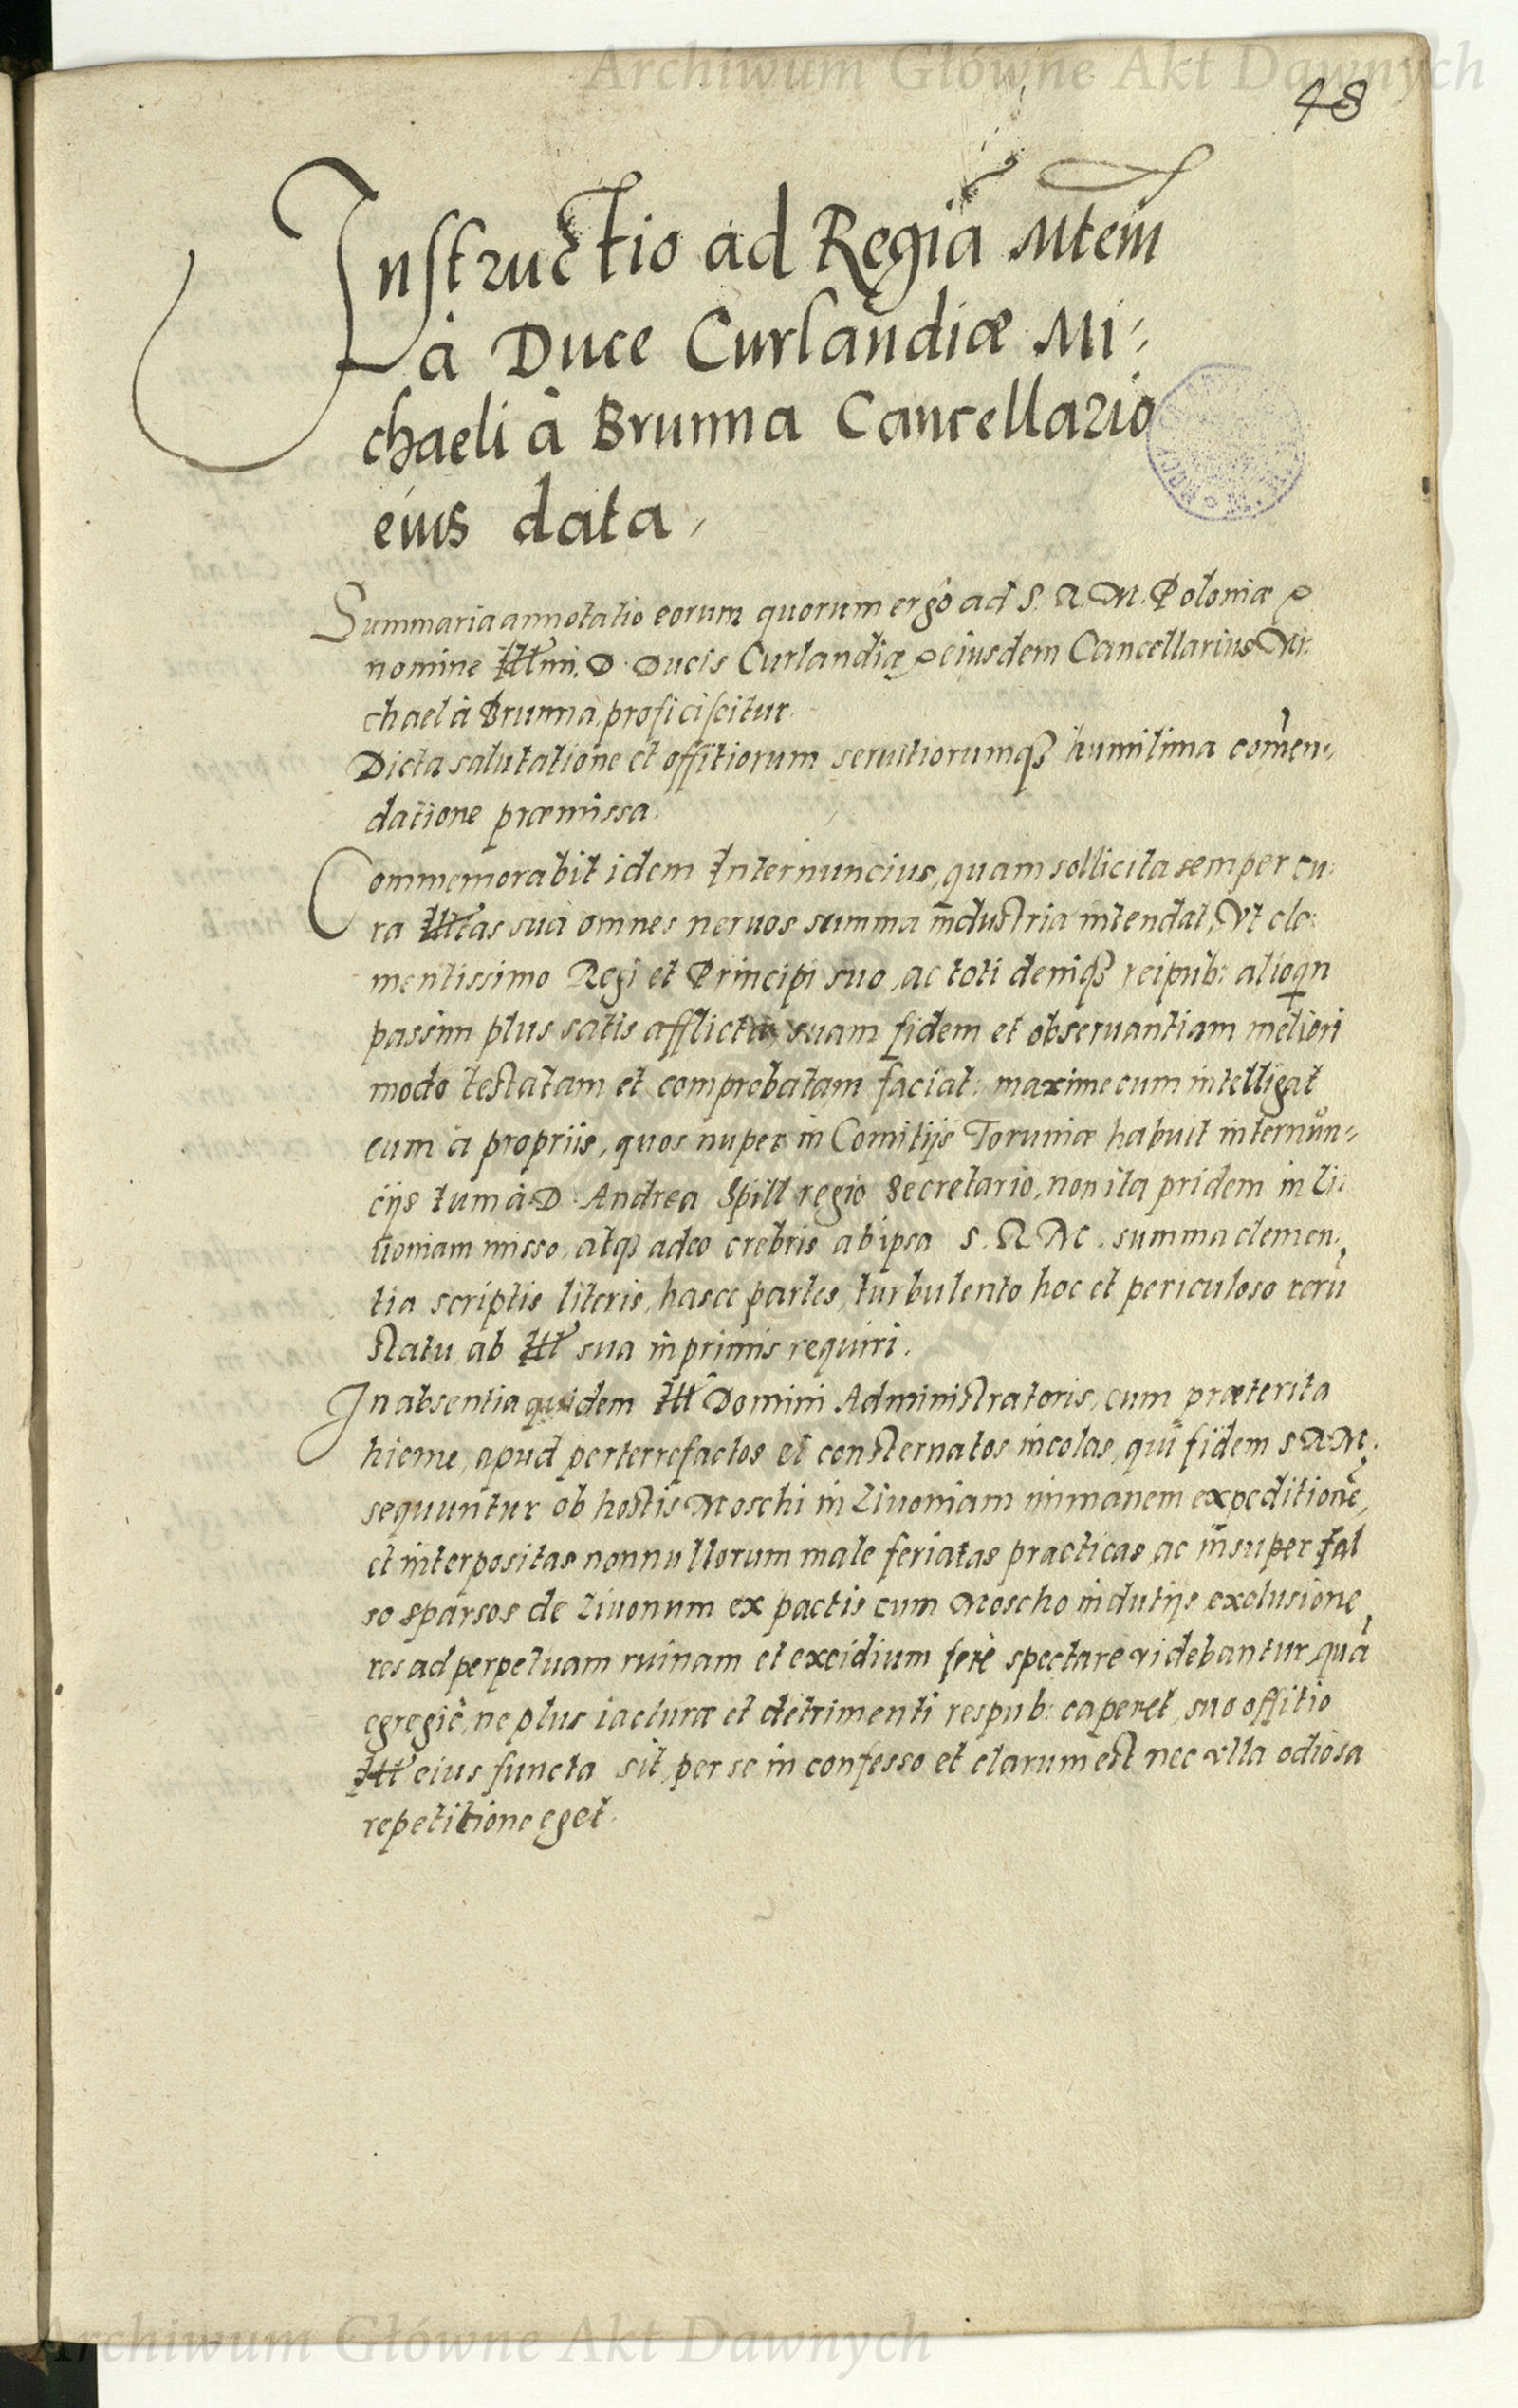 Archiwum Główne Akt Dawnych
48
Instructio ad Regiā Mtem̄
à Duce Curlandiæ Mi-
chaeli à Brunna Cancellario
eius data,
Summaria annotatio eorum quorum ergô ad S. R. M. Poloniæ
nomine Illmi. D. Ducis Curlandiæ eiusdem Cancellarius Mi:
chael à Brunna, proficiscitur.
Dicta salutatione et offitiorum seruitiorumq₃ humilima com̄en-,
datione præmissa.
Commemorabit idem Internuncius, quam sollicita semper cu:
ra Illtas sua omnes neruos summa industria intendat, Vt cle:
mentissimo Regi et Principi suo, ac toti deniq₃ reipub: alioqn
passim plus satis afflictæ, suam fidem et obseruantiam meliori
modo testatam et comprobatam faciat: maxime cum intelligat
cum a propriis, quos nuper in Comitijs Toruniæ habuit internun-
cijs tum à D. Andrea Spill regio Secretario, non ita pridem in Li:
uoniam misso, atq₃ adeo crebris ab ipsa S. R. M. summa clemen:
tia scriptis literis, hasce partes, turbulento hoc et periculoso rerū
statu, ab Ill sua in primis requiri.
In absentia quidem Ill Domini Administratoris, cum præterita
hieme, apud perterrefactos et consternatos incolas, qui fidem S R M.
sequuntur ob hostis Moschi in Liuoniam immanem expeditionē,
et interpositas nonnullorum male feriatas practicas, ac insuper fal
so sparsos de Liuonum ex pactis cum Moscho indutijs exclusione,
res ad perpetuam ruinam et excidium ferè spectare videbantur, quā
egregiè, ne plus iacturæ et detrimenti respub: caperet, suo offitio
Ill eius functa sit, per se in confesso et clarum est nec vlla odiosa
repetitione eget.
Archiwum Główne Akt Dawnych